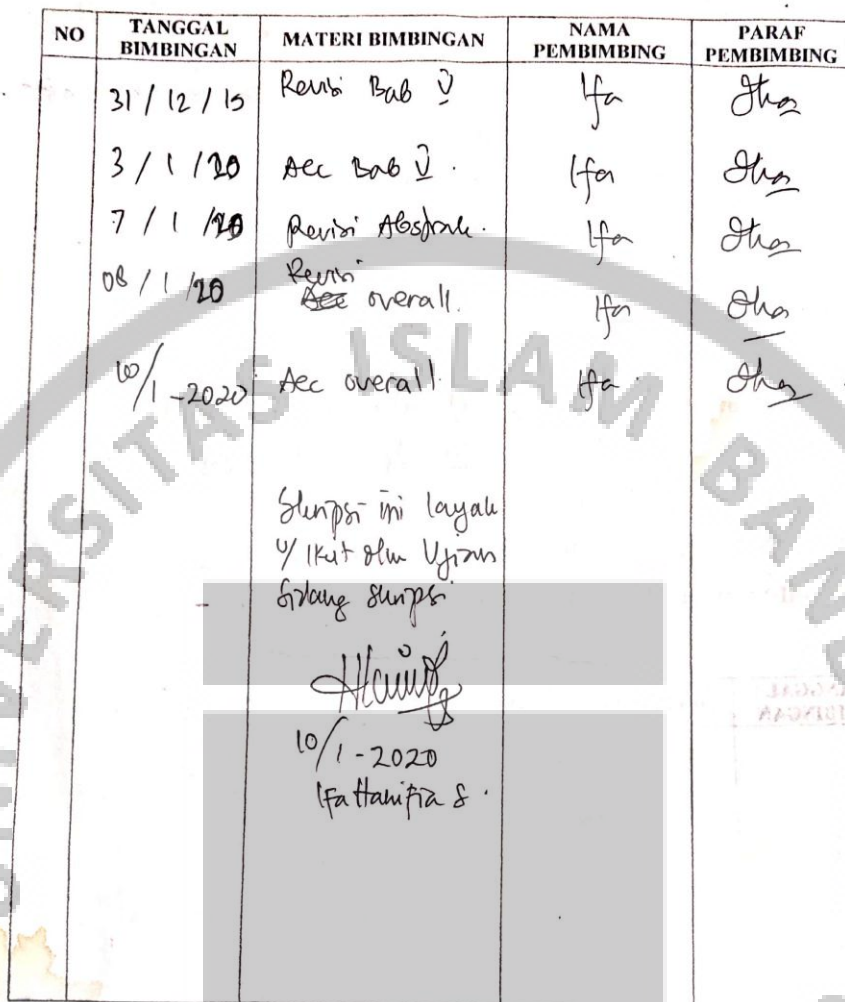 NO TANGGAL BIMBINGAN MATERI BIMBINGAN NAMA PEMBIMBING PARAF PEMBIMBING
31 / 12 / 15 Revisi Bab V Ifa
3 / 1 / 20 Acc Bab V. Ifa
7 / 1 / 20 Revisi Abstrak. Ifa
08 / 1 / 20 Revisi overall. Ifa
10/1-2020 Acc overall. Ifa
Skripsi ini layak
u/ ikut dlm Ujian
Sidang skripsi
10/1-2020
Ifa Hanifia S.
ISLAM BAN